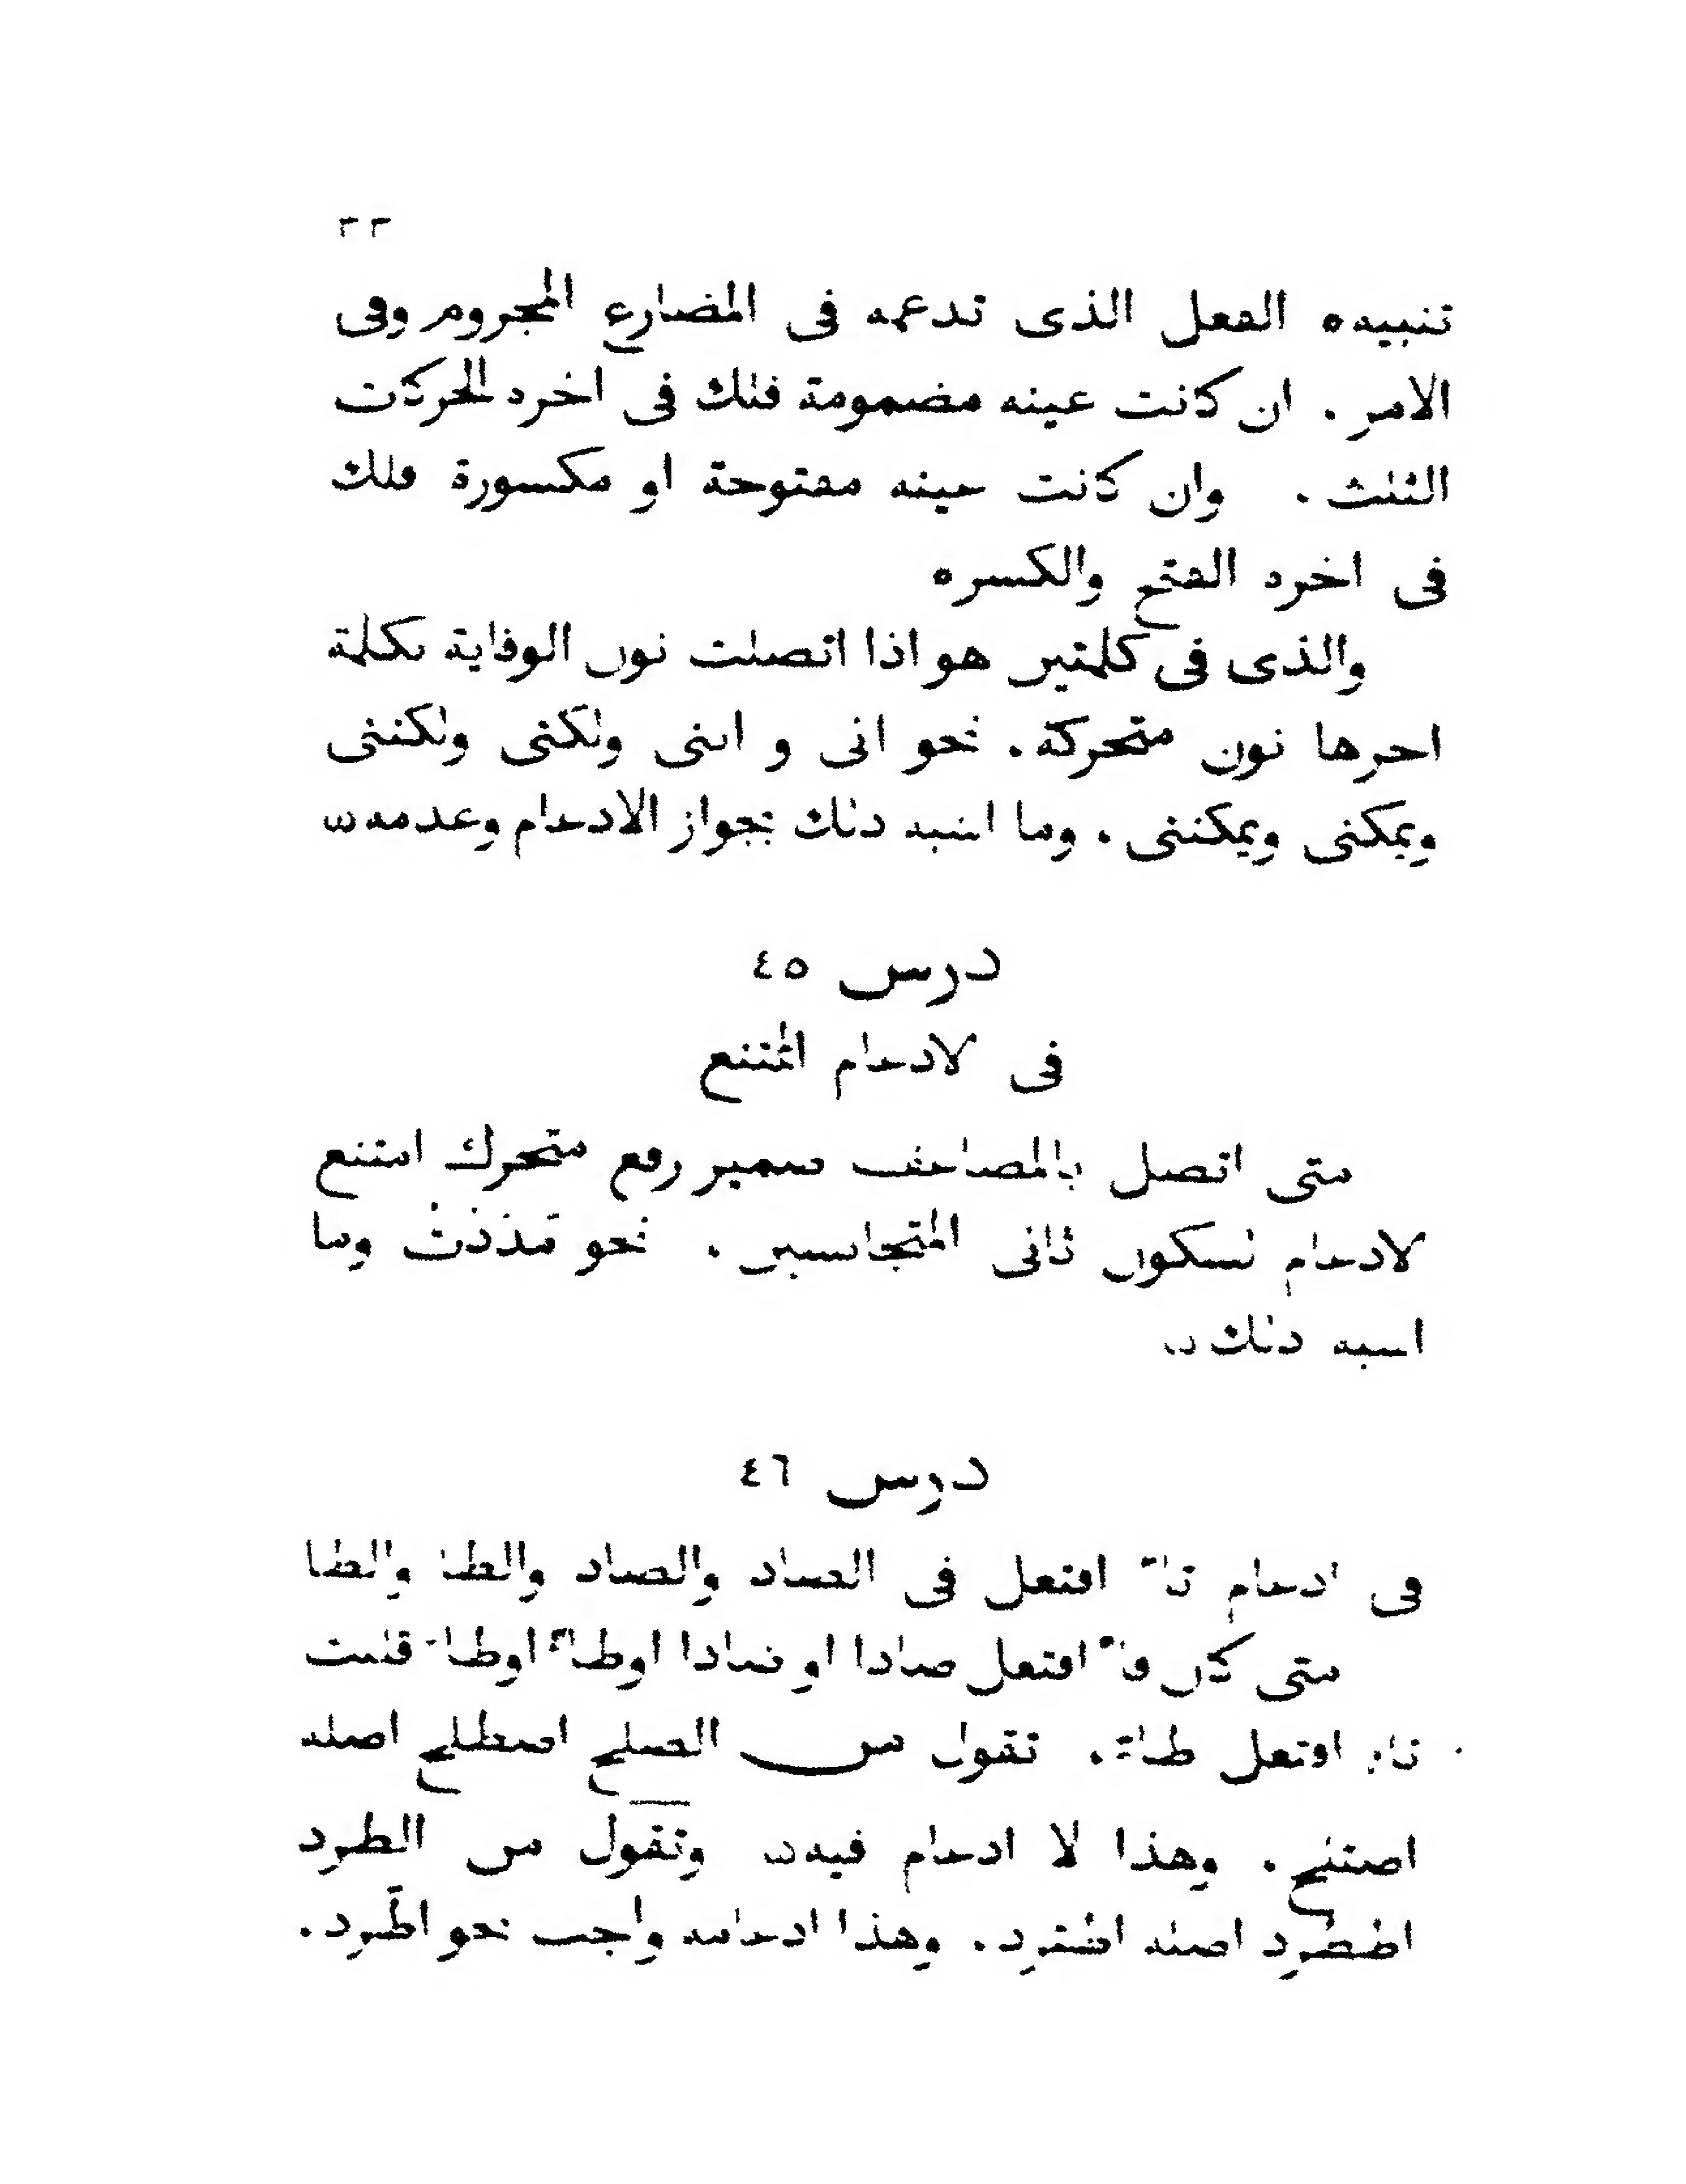 ٣٣
تنبيه ه الفعل الذى تدغمه فى المضارع المجزوم وفى
الامر . ان كانت عينه مضمومة فلك فى اخره الحركات
الثلث . وان كانت عينه مفتوحة او مكسورة فلك
فى اخره الفتح والكسر ه
والذى فى كلمتين هو اذا اتصلت نون الوقاية بكلمة
اخرها نون متحركة . نحو انى و اننى ولكنى ولكننى
ويمكنى ويمكننى . وما اشبه ذلك بجواز الادغام وعدمه
درس ٤٥
فى الادغام الممتنع
متى اتصل بالمضاعف ضمير رفع متحرك امتنع
الادغام لسكون ثانى المتجانسين . نحو مددت وما
اشبه ذلك
درس ٤٦
فى ادغام تآ افتعل فى الصاد والضاد والطا والظا
متى كان فآ افتعل صادا او ضادا او طآ او ظآ قلبت
تآ افتعل طآ . تقول من الصلح اصطلح اصله
اصتلح . وهذا لا ادغام فيه وتقول من الطرد
اططرد اصله اطترد . وهذا ادغامه واجب نحو اطّرد .